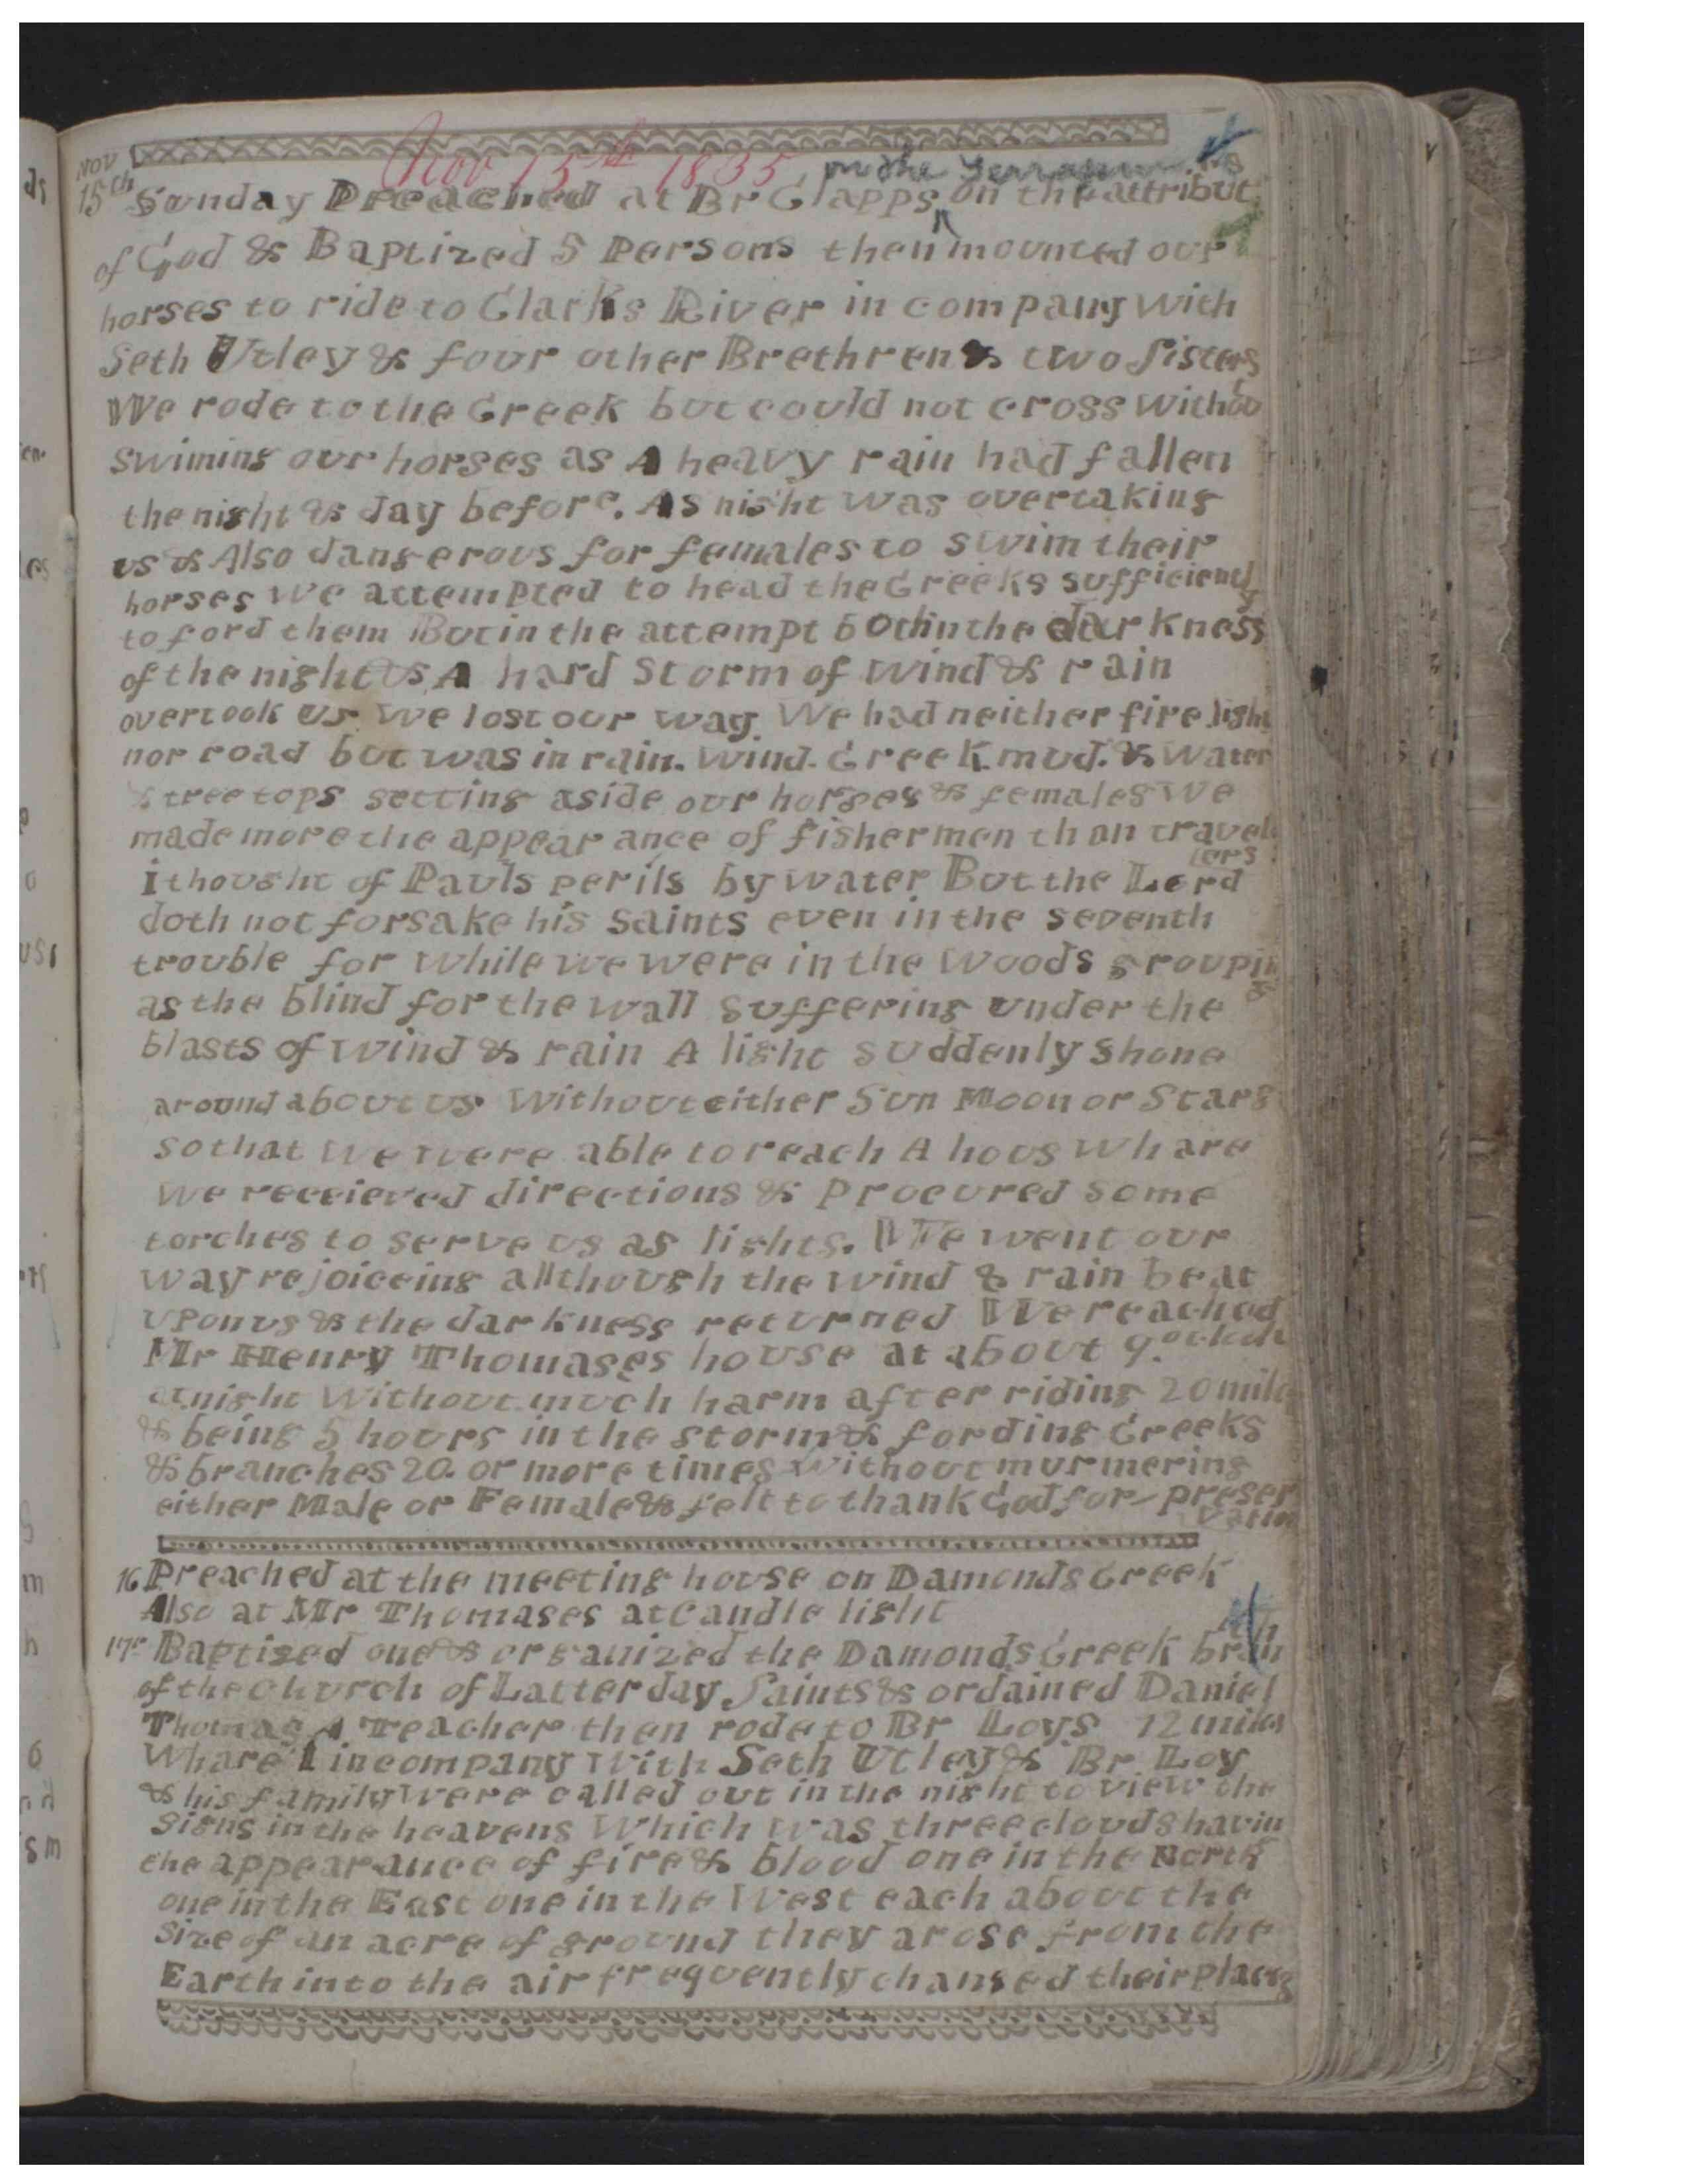 Nov 15th 1835
Nov
15th Sunday Preached at Br Clapps on the Terrapin on the attributes
of God & Baptized 5 Persons then mounted our
horses to ride to Clarks River in company with
Seth Utley & four other Brethren & two Sisters
We rode to the Creek but could not cross without
swiming our horses as A heavy rain had fallen
the night & day before. As night was overtaking
us & Also dangerous for females to swim their
horses we attempted to head the Creeks sufficiently
to ford them But in the attempt both in the darkness
of the night & A hard Storm of wind & rain
overtook us we lost our way. We had neither fire light
nor road but was in rain. Wind. Creek. mud. & Water
& tree tops setting aside our horses & females We
made more the appearance of fishermen than travel
lers
i thought of Pauls perils by water But the Lord
doth not forsake his Saints even in the seventh
trouble for while we were in the woods grouping
as the blind for the wall suffering under the
blasts of wind & rain A light suddenly shone
around about us without either Sun Moon or Stars
so that we were able to reach A hous whare
we receieved directions & Procured some
torches to serve us as lights. We went our
way rejoiceing allthough the wind & rain beat
upon us & the darkness returned We reached
Mr Henry Thomases house at about 9. oclock
at night without much harm after riding 20 mile
& being 5 hours in the storm & fording Creeks
& branches 20. or more times without murmering
either Male or Female & felt to thank God for preser
vation
16 Preached at the meeting house on Damonds Creek
Also at Mr Thomases at Candle light
17th Baptised one & organized the Damonds Creek branch
of the Church of Latter day Saints & ordained Daniel
Thomas A Teacher then rode to Br Loys 12 miles
Whare I in company with Seth Utley & Br Loy
& his family were called out in the night to view the
Signs in the heavens Which was three clouds having
the appearance of fire & blood one in the North
one in the East one in the West each about the
size of an acre of ground they arose from the
Earth into the air frequently changed their places